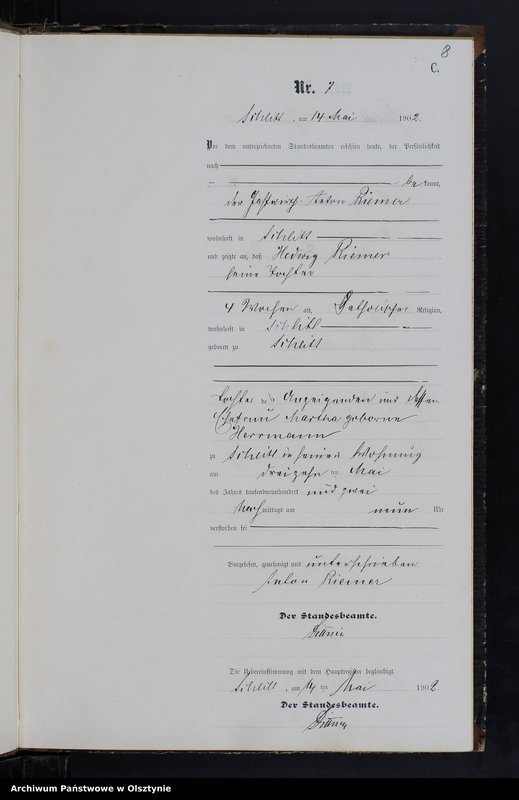 8
C.
Nr. 7
am 14 Mai 1902.
Vor dem unterzeichneten Standesbeamten erschien heute, der Persönlichkeit
nach
bekannt,
der Gastwirth Anton Riemer
wohnhaft in
und zeigte an, daß Hedwig Riemer
seine Tochter
4 Wochen alt, katholischer Religion,
wohnhaft in
geboren zu
Tochter des Anzeigenden und dessen
Ehefrau Martha geborene
Herrmann
zu in seiner Wohnung
am dreizehn ten Mai
des Jahres tausendneunhundert und zwei
Nachmittags um neun Uhr
verstorben sei
Vorgelesen, genehmigt und unterschrieben
Anton Riemer
Der Standesbeamte.
Die Uebereinstimmung mit dem Hauptregister beglaubigt.
am 14 ten Mai 1902
Der Standesbeamte.
Archiwum Państwowe w Olsztynie